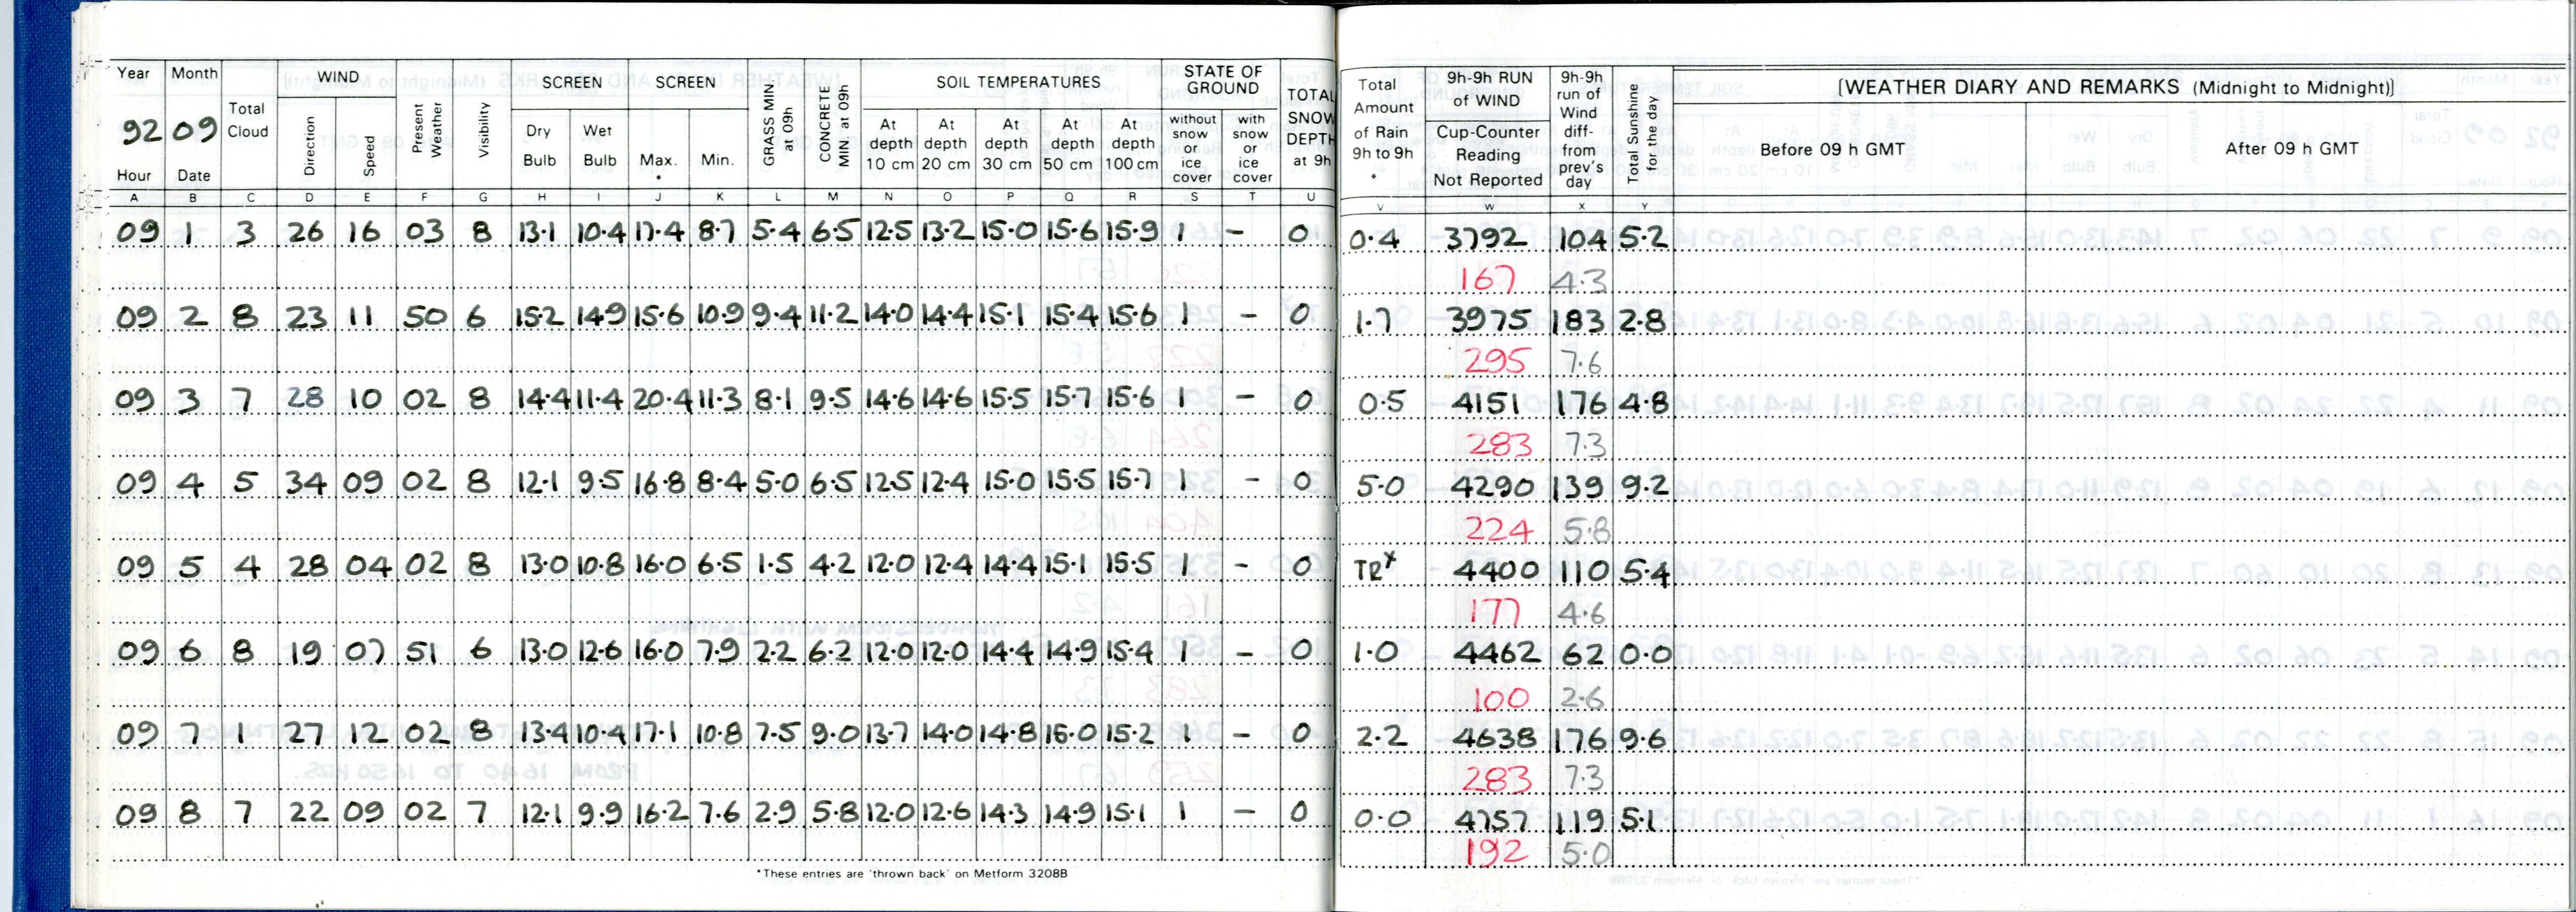 Year Month WIND SCREEN SCREEN SOIL TEMPERATURES STATE OF GROUND
92 09 Total Cloud Direction Speed Present Weather Visibility Dry Bulb Wet Bulb Max. * Min. GRASS MIN. at 09h CONCRETE MIN. at 09h At depth 10 cm At depth 20 cm At depth 30 cm At depth 50 cm At depth 100 cm without snow or ice cover with snow or ice cover TOTAL SNOW DEPTH at 9h
Hour Date
A B C D E F G H I J K L M N O P Q R S T U
Total Amount of Rain 9h to 9h * 9h-9h RUN of WIND Cup-Counter Reading Not Reported 9h-9h run of Wind diff- from prev's day Total Sunshine for the day [WEATHER DIARY AND REMARKS (Midnight to Midnight)]
Before 09 h GMT After 09 h GMT
V W X Y
09 1 3 26 16 03 8 13.1 10.4 17.4 8.7 5.4 6.5 12.5 13.2 15.0 15.6 15.9 1 - 0 0.4 3792 104 5.2
167 4.3
09 2 8 23 11 50 6 15.2 14.9 15.6 10.9 9.4 11.2 14.0 14.4 15.1 15.4 15.6 1 - 0 1.7 3975 183 2.8
295 7.6
09 3 7 28 10 02 8 14.4 11.4 20.4 11.3 8.1 9.5 14.6 14.6 15.5 15.7 15.6 1 - 0 0.5 4151 176 4.8
283 7.3
09 4 5 34 09 02 8 12.1 9.5 16.8 8.4 5.0 6.5 12.5 12.4 15.0 15.5 15.7 1 - 0 5.0 4290 139 9.2
224 5.8
09 5 4 28 04 02 8 13.0 10.8 16.0 6.5 1.5 4.2 12.0 12.4 14.4 15.1 15.5 1 - 0 TR* 4400 110 5.4
177 4.6
09 6 8 19 07 51 6 13.0 12.6 16.0 7.9 2.2 6.2 12.0 12.0 14.4 14.9 15.4 1 - 0 1.0 4462 62 0.0
100 2.6
09 7 1 27 12 02 8 13.4 10.4 17.1 10.8 7.5 9.0 13.7 14.0 14.8 15.2 1 - 0 2.2 4638 176 9.6
283 7.3
09 8 7 22 09 02 7 12.1 9.9 16.2 7.6 2.9 5.8 12.0 12.6 14.3 14.9 15.1 1 - 0 0.0 4757 119 5.1
192 5.0
*These entries are 'thrown back' on Metform 3208B